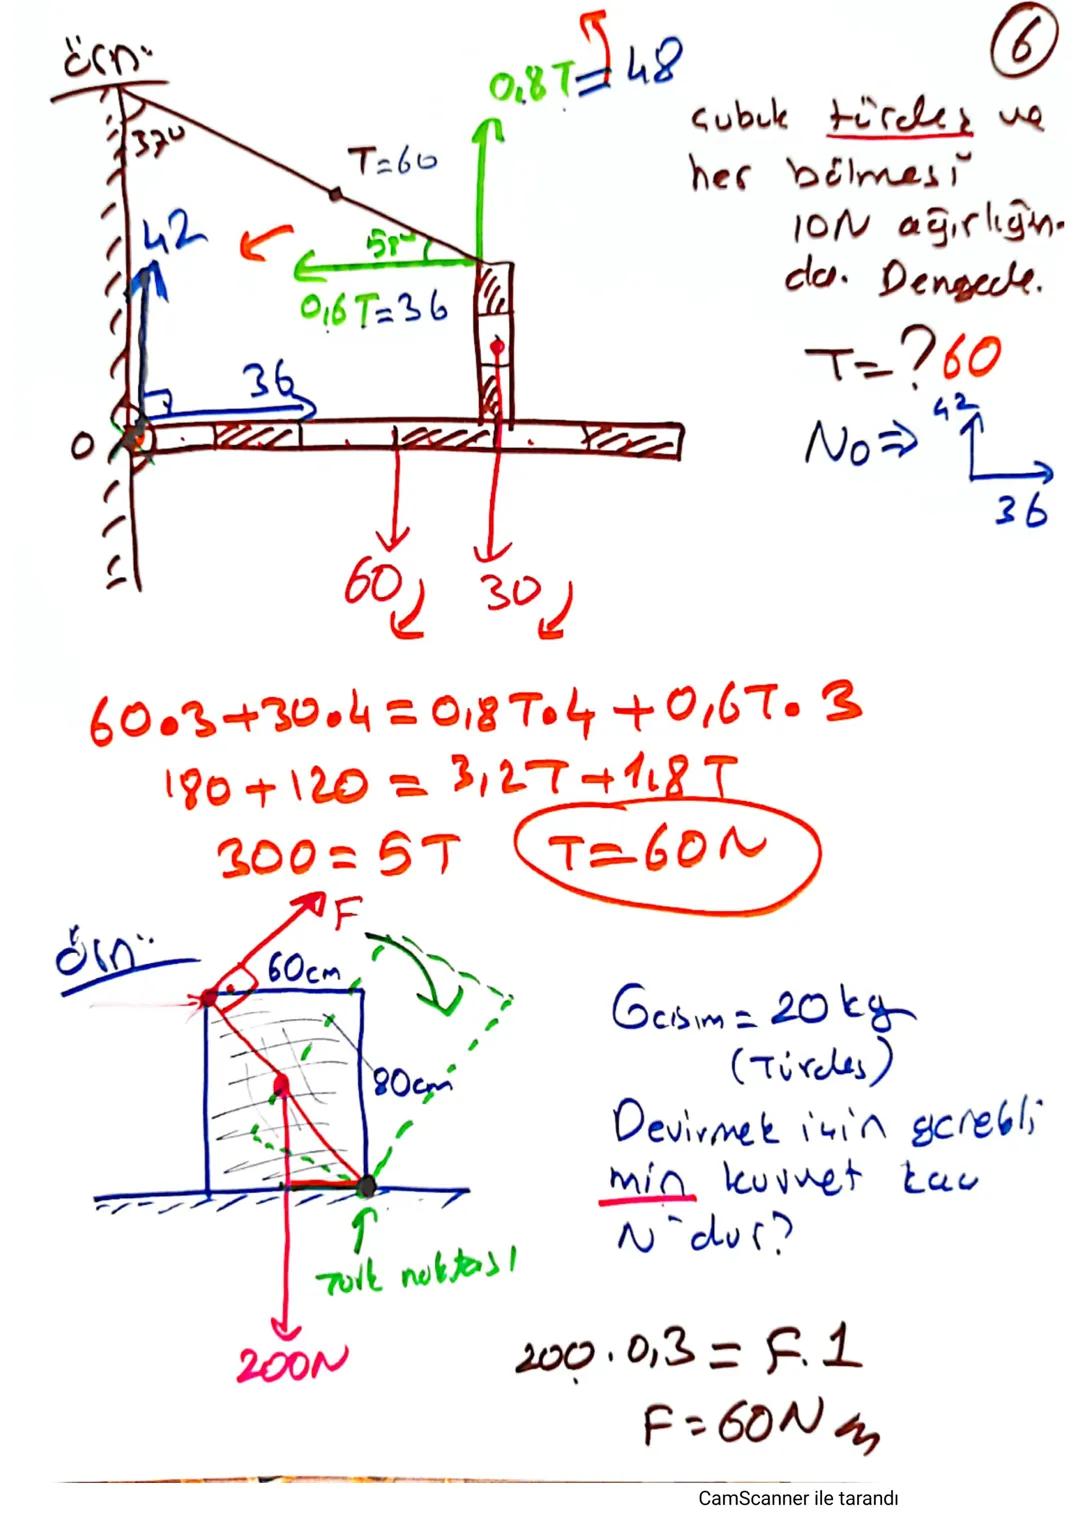 6
Örn:
37°
T=60
0,8T=48
53°
0,6T=36
42
36
O
60
30
Çubuk türdeş ve
her bölmesi
10N ağırlığın-
da. Dengede.
T=? 60
No⇒ 42
36
60.3+30.4=0,8T.4+0,6T.3
180+120=3,2T+1,8T
300=5T T=60N
Örn:
F
60cm
80cm
Tork noktası
200N
Gcisim=20kg
(Türdeş)
Devirmek için gerekli
min kuvvet kaç
N'dur?
200.0,3=F.1
F=60N
CamScanner ile tarandı